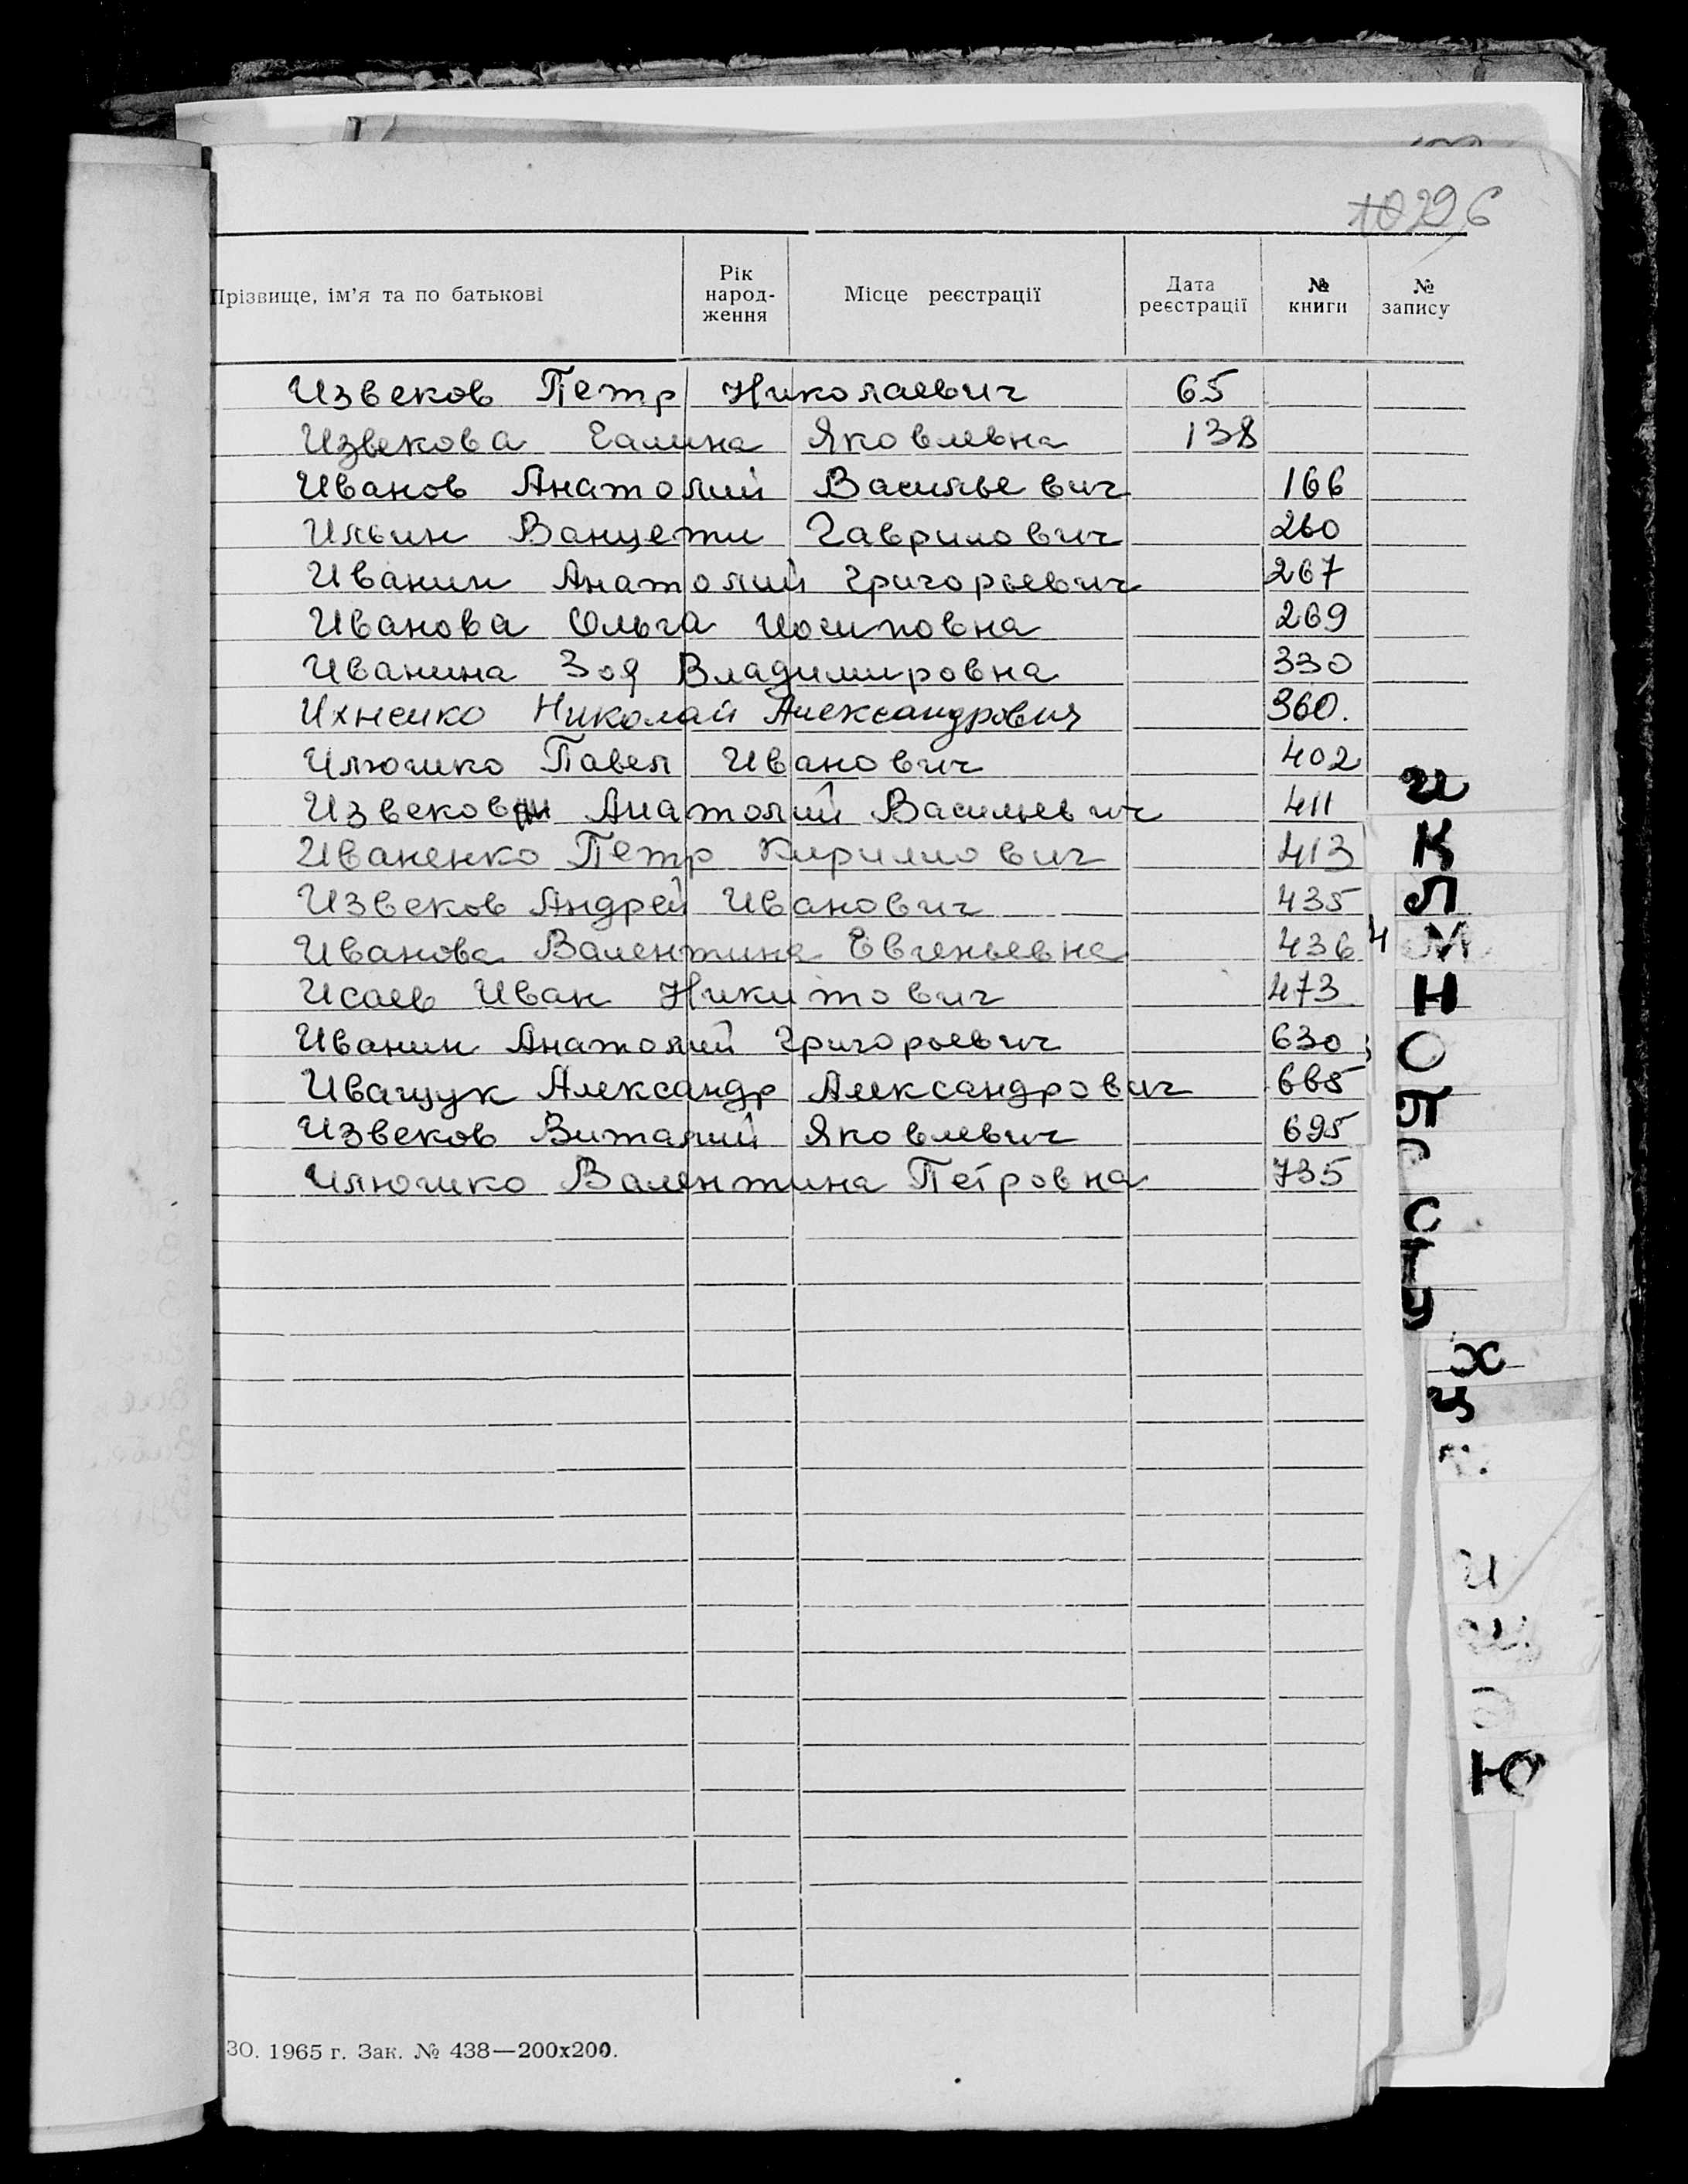 6
Прізвище, ім'я та по батькові Рік народ-ження Місце реєстрації Дата реєстрації № книги № запису
Извеков Петр Николаевич 65
Извекова Галина Яковлевна 138
Иванов Анатолий Васильевич 166
Ильин Ванцети Гаврилович 260
Иванин Анатолий Григорьевич 267
Иванова Ольга Иосиповна 269
Иванина Зоя Владимировна 330
Ихненко Николай Александрович 360.
Илюшко Павел Иванович 402
Извеков Анатолий Васильевич 411
Иваненко Петр Кирилович 413
Извеков Андрей Иванович 435
Иванова Валентина Евгеньевна 436
Исаев Иван Никитович 473
Иванин Анатолий Григорьевич 630
Иващук Александр Александрович 665
Извеков Виталий Яковлевич 695
Илюшко Валентина Петровна 735
И
К
Л
М
Н
О
П
Р
С
Т
У
Х
Ц
Ю
ЗО. 1965 г. Зак. № 438—200х200.